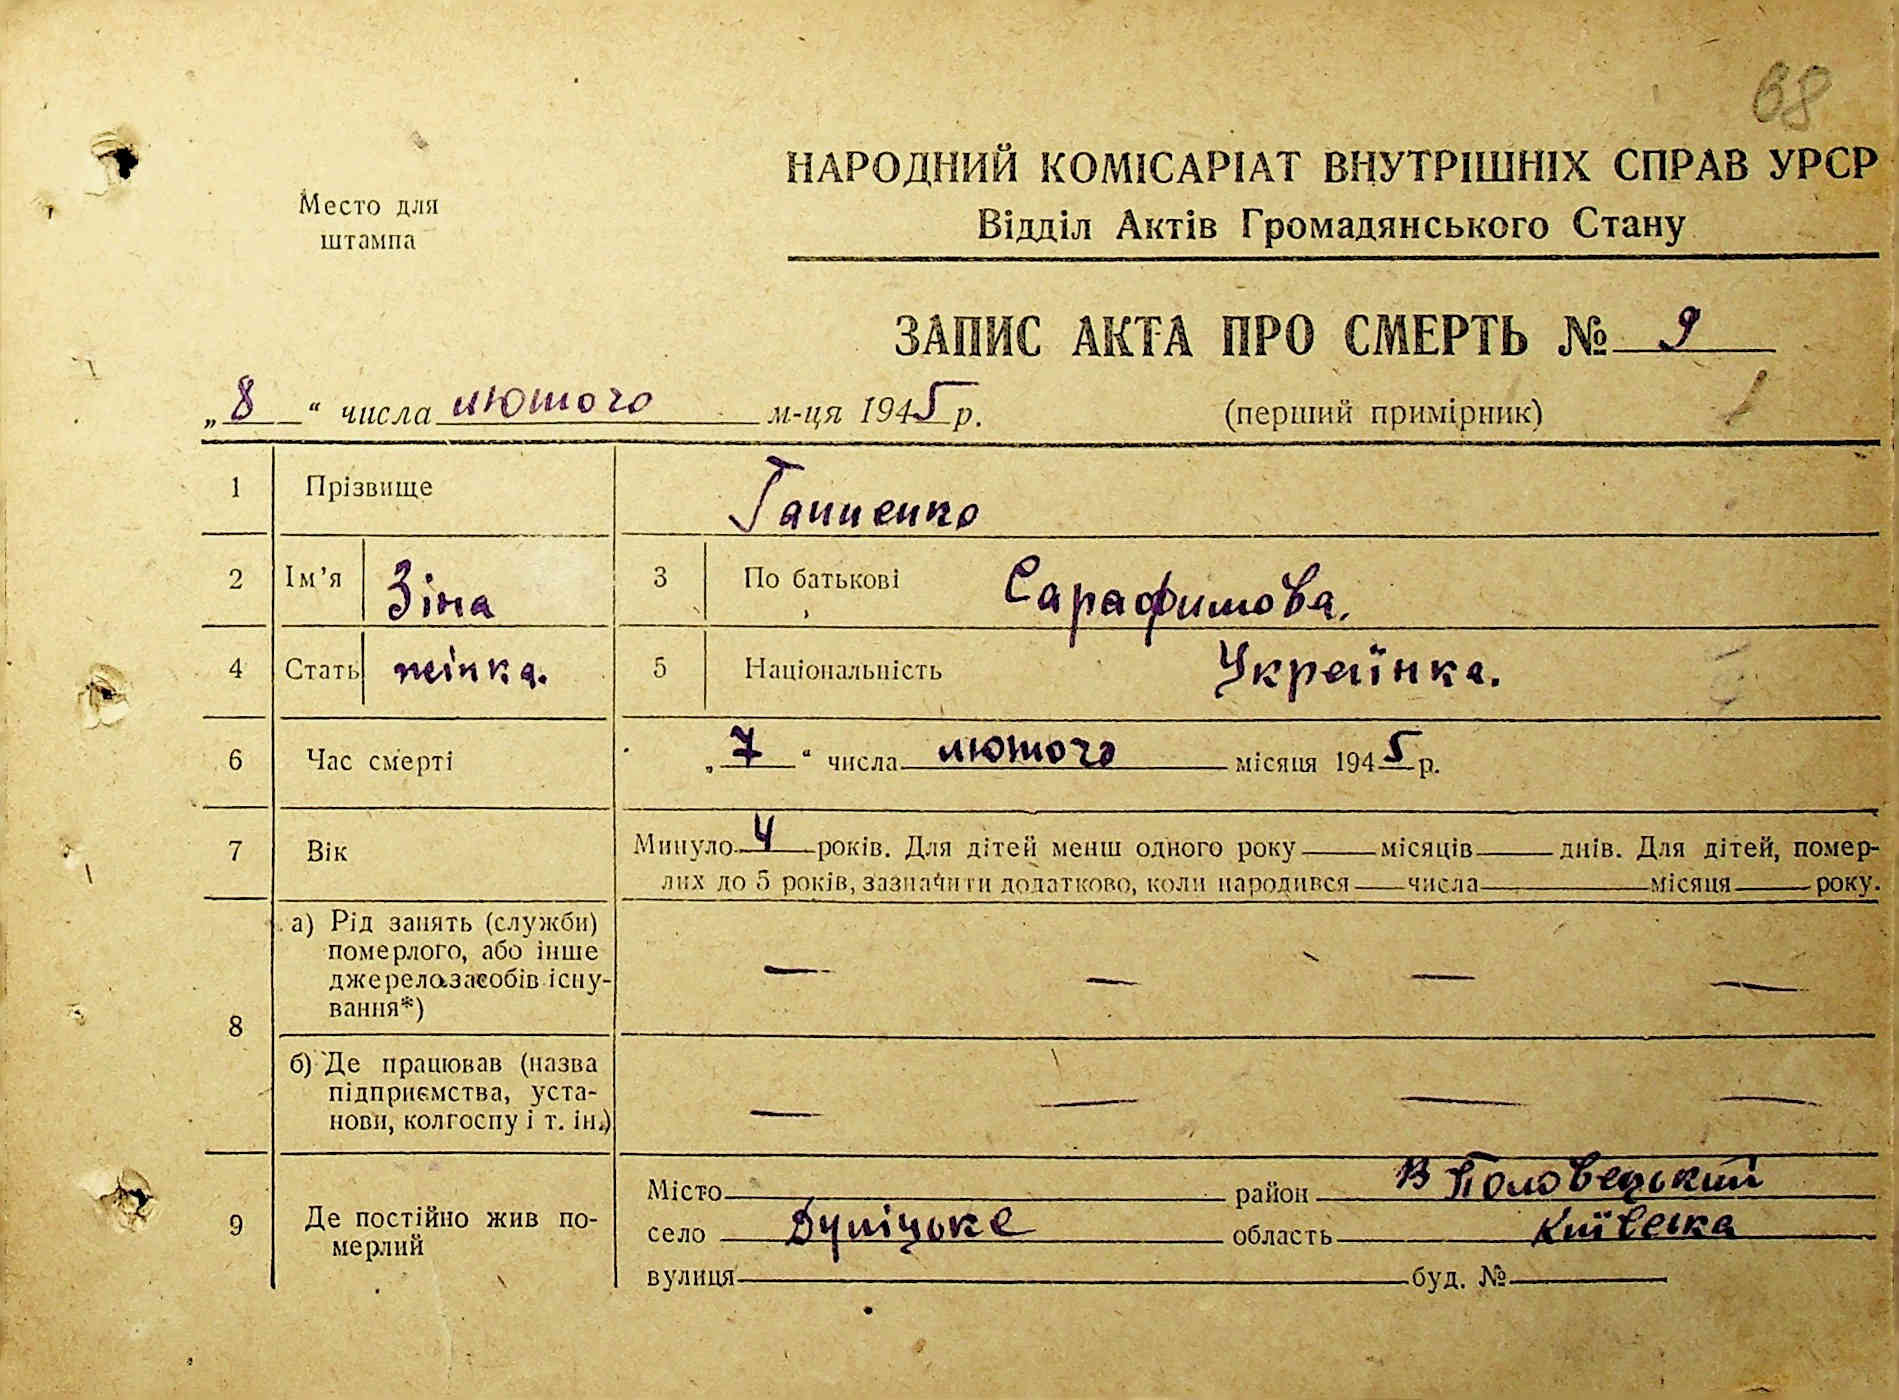 68
НАРОДНИЙ КОМІСАРІАТ ВНУТРІШНІХ СПРАВ УРСР
Место для
штампа
Відділ Актів Громадянського Стану
ЗАПИС АКТА ПРО СМЕРТЬ № 9
„8“ числа лютого м-ця 1945 р.
(перший примірник)
1 Прізвище Ганненко
2 Ім’я Зіна 3 По батькові Сарафимова.
4 Стать жінка. 5 Національність Українка.
6 Час смерті „7“ числа лютого місяця 1945 р.
7 Вік Минуло 4 років. Для дітей менш одного року місяців днів. Для дітей, помер-
лих до 5 років, зазначити додатково, коли народився числа місяця року.
8 а) Рід занять (служби)
померлого, або інше
джерело засобів існу-
вання*)
— — — —
б) Де працював (назва
підприємства, уста-
нови, колгоспу і т. ін.)
— — — —
9 Де постійно жив по-
мерлий
Місто район В Половецький
село область Київська
вулиця буд. №